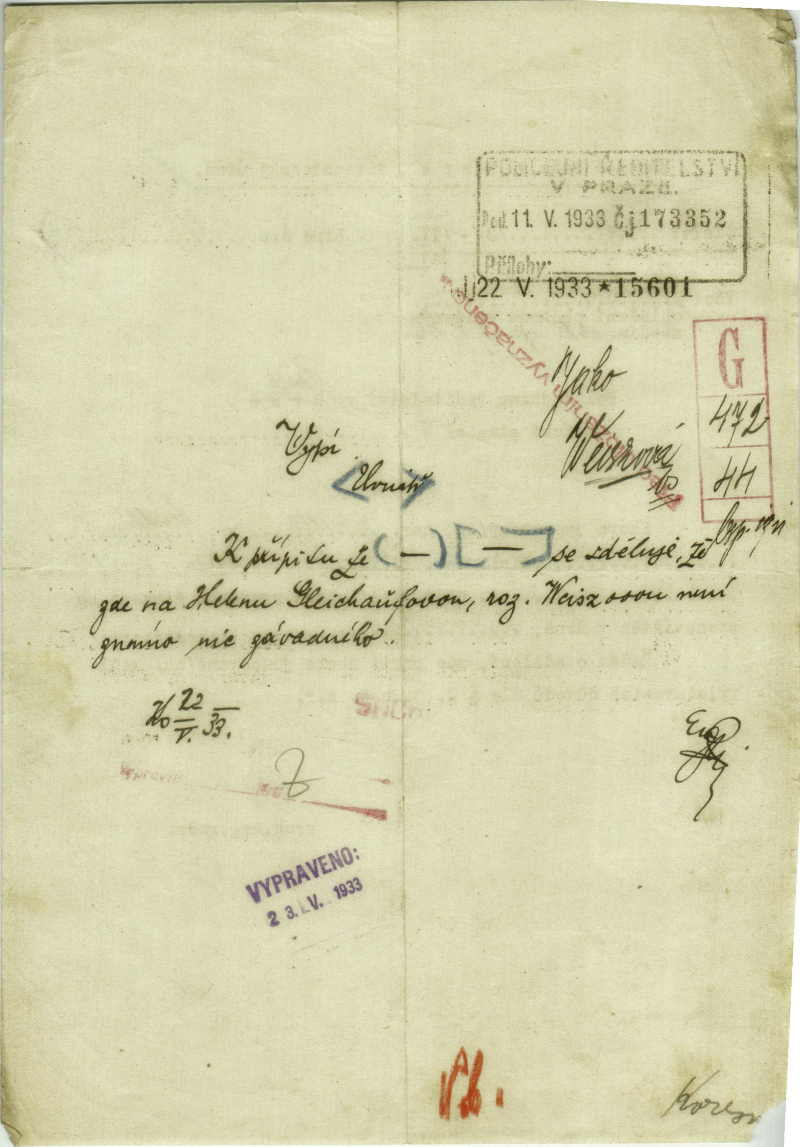 POLICEJNÍ ŘEDITELSTVÍ
V PRAZE.
Pod. 11. V. 1933 Čj 173352
Přílohy:
22 V. 1933 * 15601
G
472
44
Jako
Weiszová
Vypí
K přípisu ze (—) [—] se zděluje, že
zde na Helenu Gleichaufovou, roz. Weiszovou není
známo nic závadného.
22
V. 33.
VYPRAVENO:
23. V. 1933